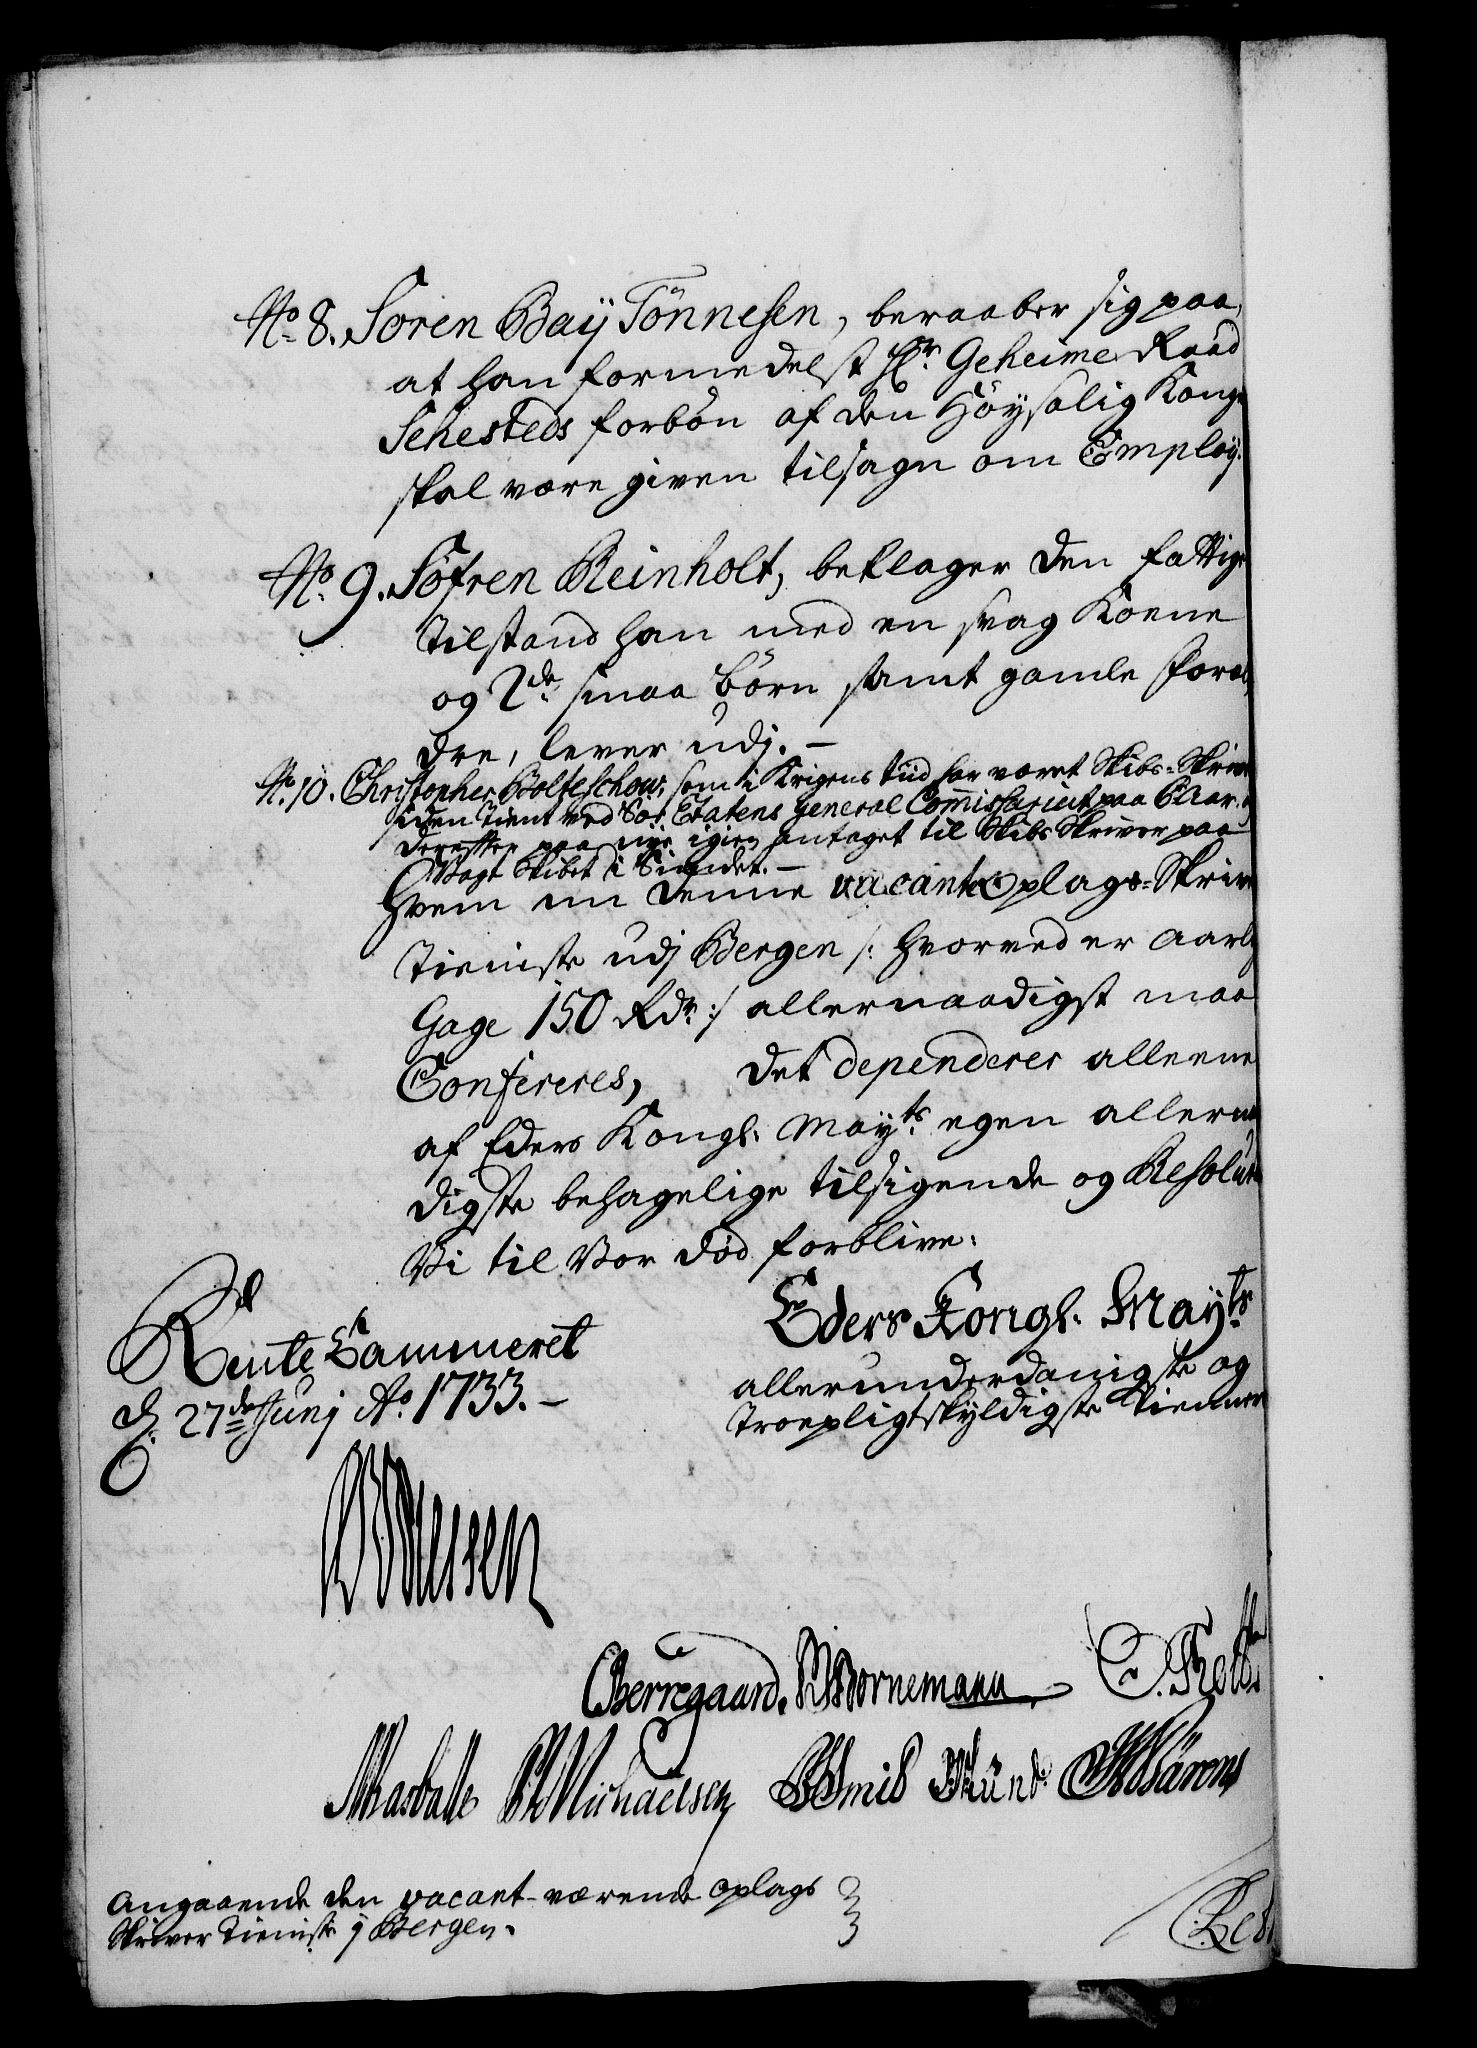 No 8. Soren Baij Tönnesen, beraaber sig paa,
at han formedelst Hr. Geheime Raad
Sehesteds forbön af den Höysalig Konge
skal være given tilsagn om Employ.
No. 9. Söfren Reinholt, beklager den fattige
tilstand han med en svag Koene
og 2de smaa börn samt gamle foræl,
dre, lever udj. -
No. 10. Christopher Bolteschow, som i Krigens tiid har været Skibs-Skriver
siden tient ved Söe Etatens general Commissariat paa 6 Aar,
derefter paa nye igien antaget til Skibs Skriver paa
Vagt Skibet i Sundet. -
Hvem nu denne vacante Oplags-Skriver
Tieniste udj Bergen /: hvorved er aarlig
Gage 150 Rdr :/ allernaadigst maa
Confereres, det dependerer alleene
af Eders Kongl. Mayts. egen allernaa
digste behagelige tilsigende og Resolution
Vi til Vor död forblive.
Eders Kongl. Mayts.
Rente Cammeret
d. 27de Junj Ao. 1733. -
allerunderdanigste og
Troepligtskyldigste tiennere
Berregaard. Bornemann
Michaelsen Smid
Angaaende den vacant-værende Oplags
Skriver Tieniste j Bergen.